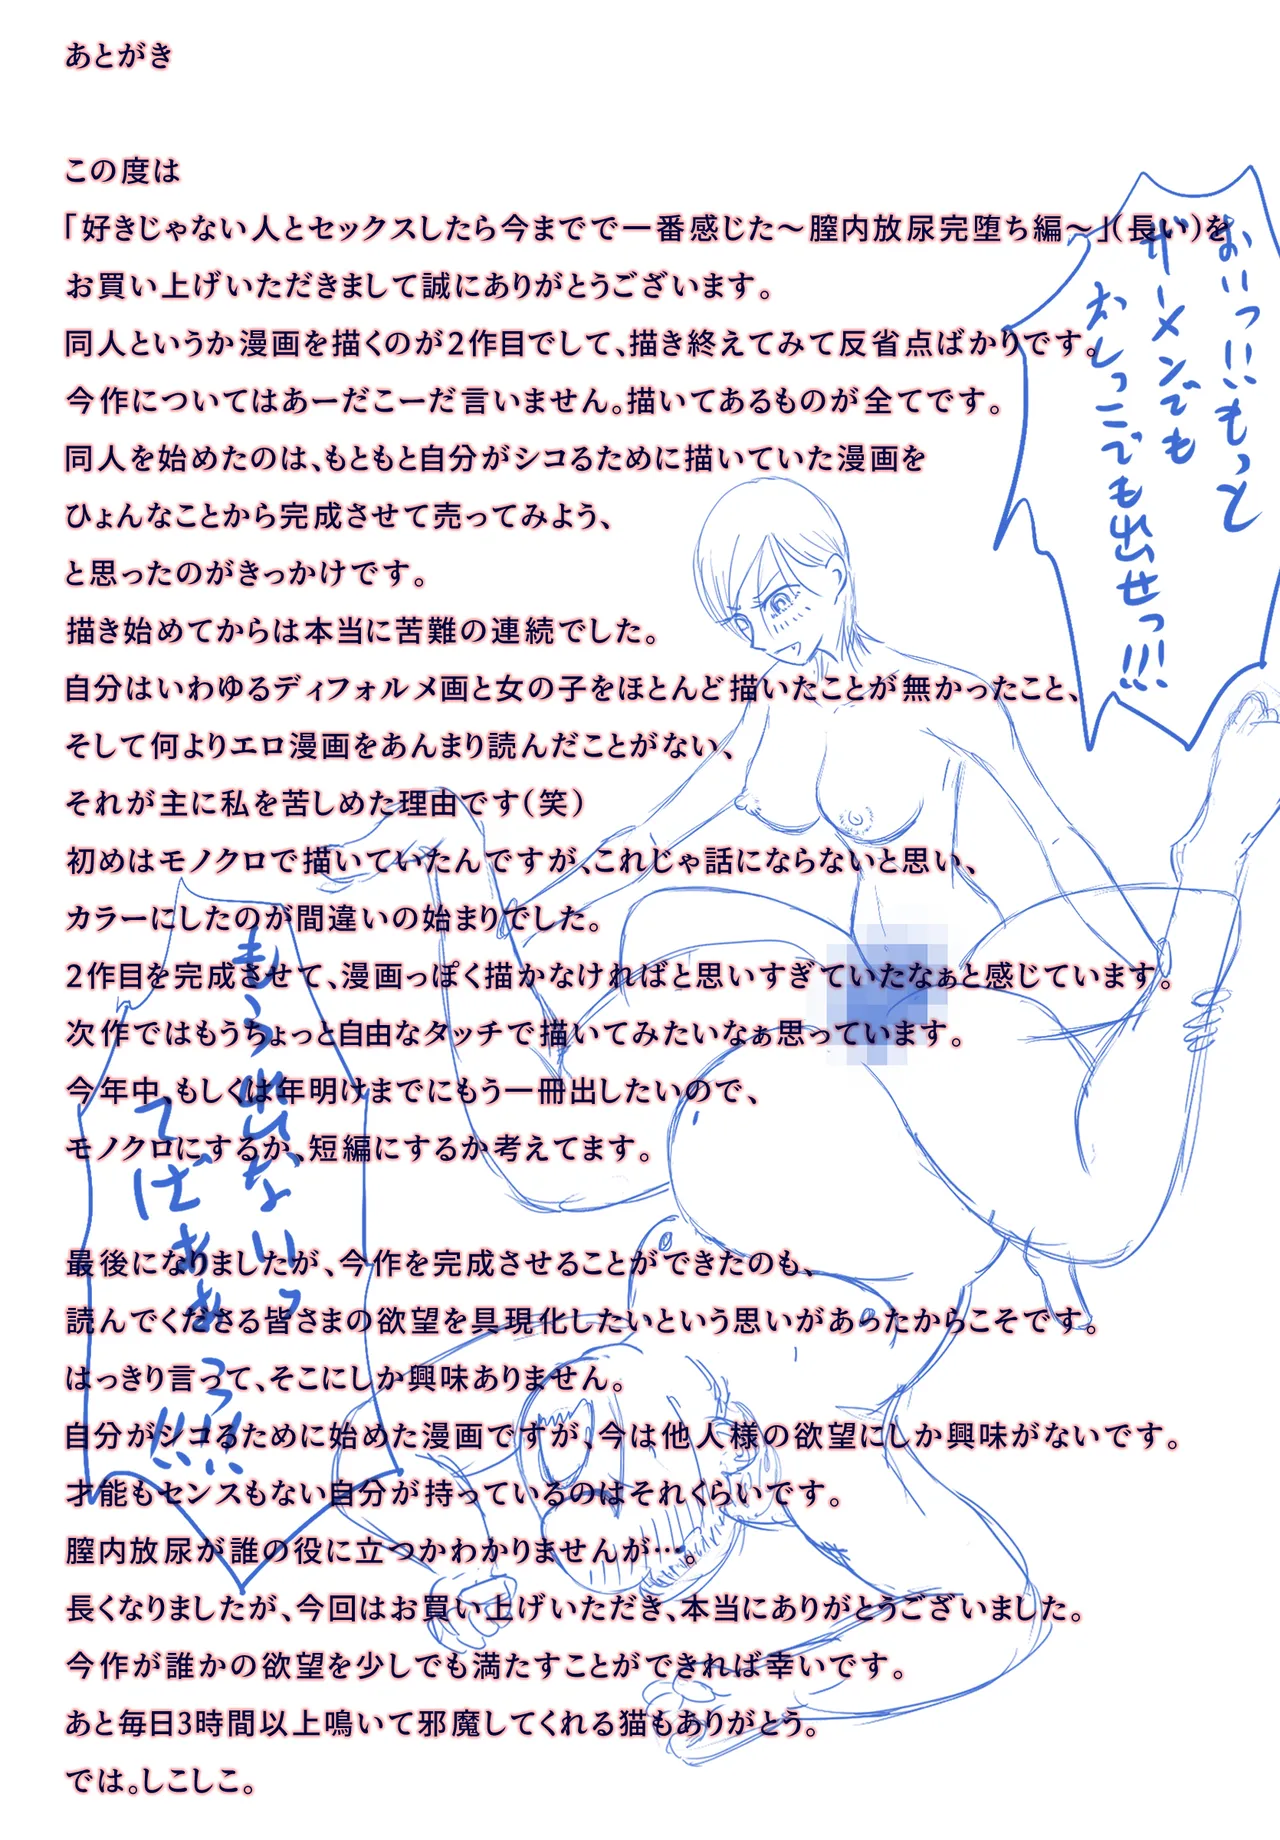 あとがき
この度は
「好きじゃない人とセックスしたら今までで一番感じた～膣内放尿完堕ち編～」(長い)を
お買い上げいただきまして誠にありがとうございます。
同人というか漫画を描くのが2作目でして、描き終えてみて反省点ばかりです。
今作についてはあーだこーだ言いません。描いてあるものが全てです。
同人を始めたのは、もともと自分がシコるために描いていた漫画を
ひょんなことから完成させて売ってみよう、
と思ったのがきっかけです。
描き始めてからは本当に苦難の連続でした。
自分はいわゆるディフォルメ画と女の子をほとんど描いたことが無かったこと、
そして何よりエロ漫画をあんまり読んだことがない、
それが主に私を苦しめた理由です(笑)
初めはモノクロで描いていたんですが、これじゃ話にならないと思い、
カラーにしたのが間違いの始まりでした。
2作目を完成させて、漫画っぽく描かなければと思いすぎていたなぁと感じています。
次作ではもうちょっと自由なタッチで描いてみたいなぁ思っています。
今年中、もしくは年明けまでにもう一冊出したいので、
モノクロにするか、短編にするか考えてます。
最後になりましたが、今作を完成させることができたのも、
読んでくださる皆さまの欲望を具現化したいという思いがあったからこそです。
はっきり言って、そこにしか興味ありません。
自分がシコるために始めた漫画ですが、今は他人様の欲望にしか興味がないです。
才能もセンスもない自分が持っているのはそれくらいです。
膣内放尿が誰の役に立つかわかりませんが…。
長くなりましたが、今回はお買い上げいただき、本当にありがとうございました。
今作が誰かの欲望を少しでも満たすことができれば幸いです。
あと毎日3時間以上鳴いて邪魔してくれる猫もありがとう。
では。しこしこ。
おいっ!!もっと
ザーメンでも
おしっこでも出せっ!!!
もう出ないっ
てばぁぁっ!!!